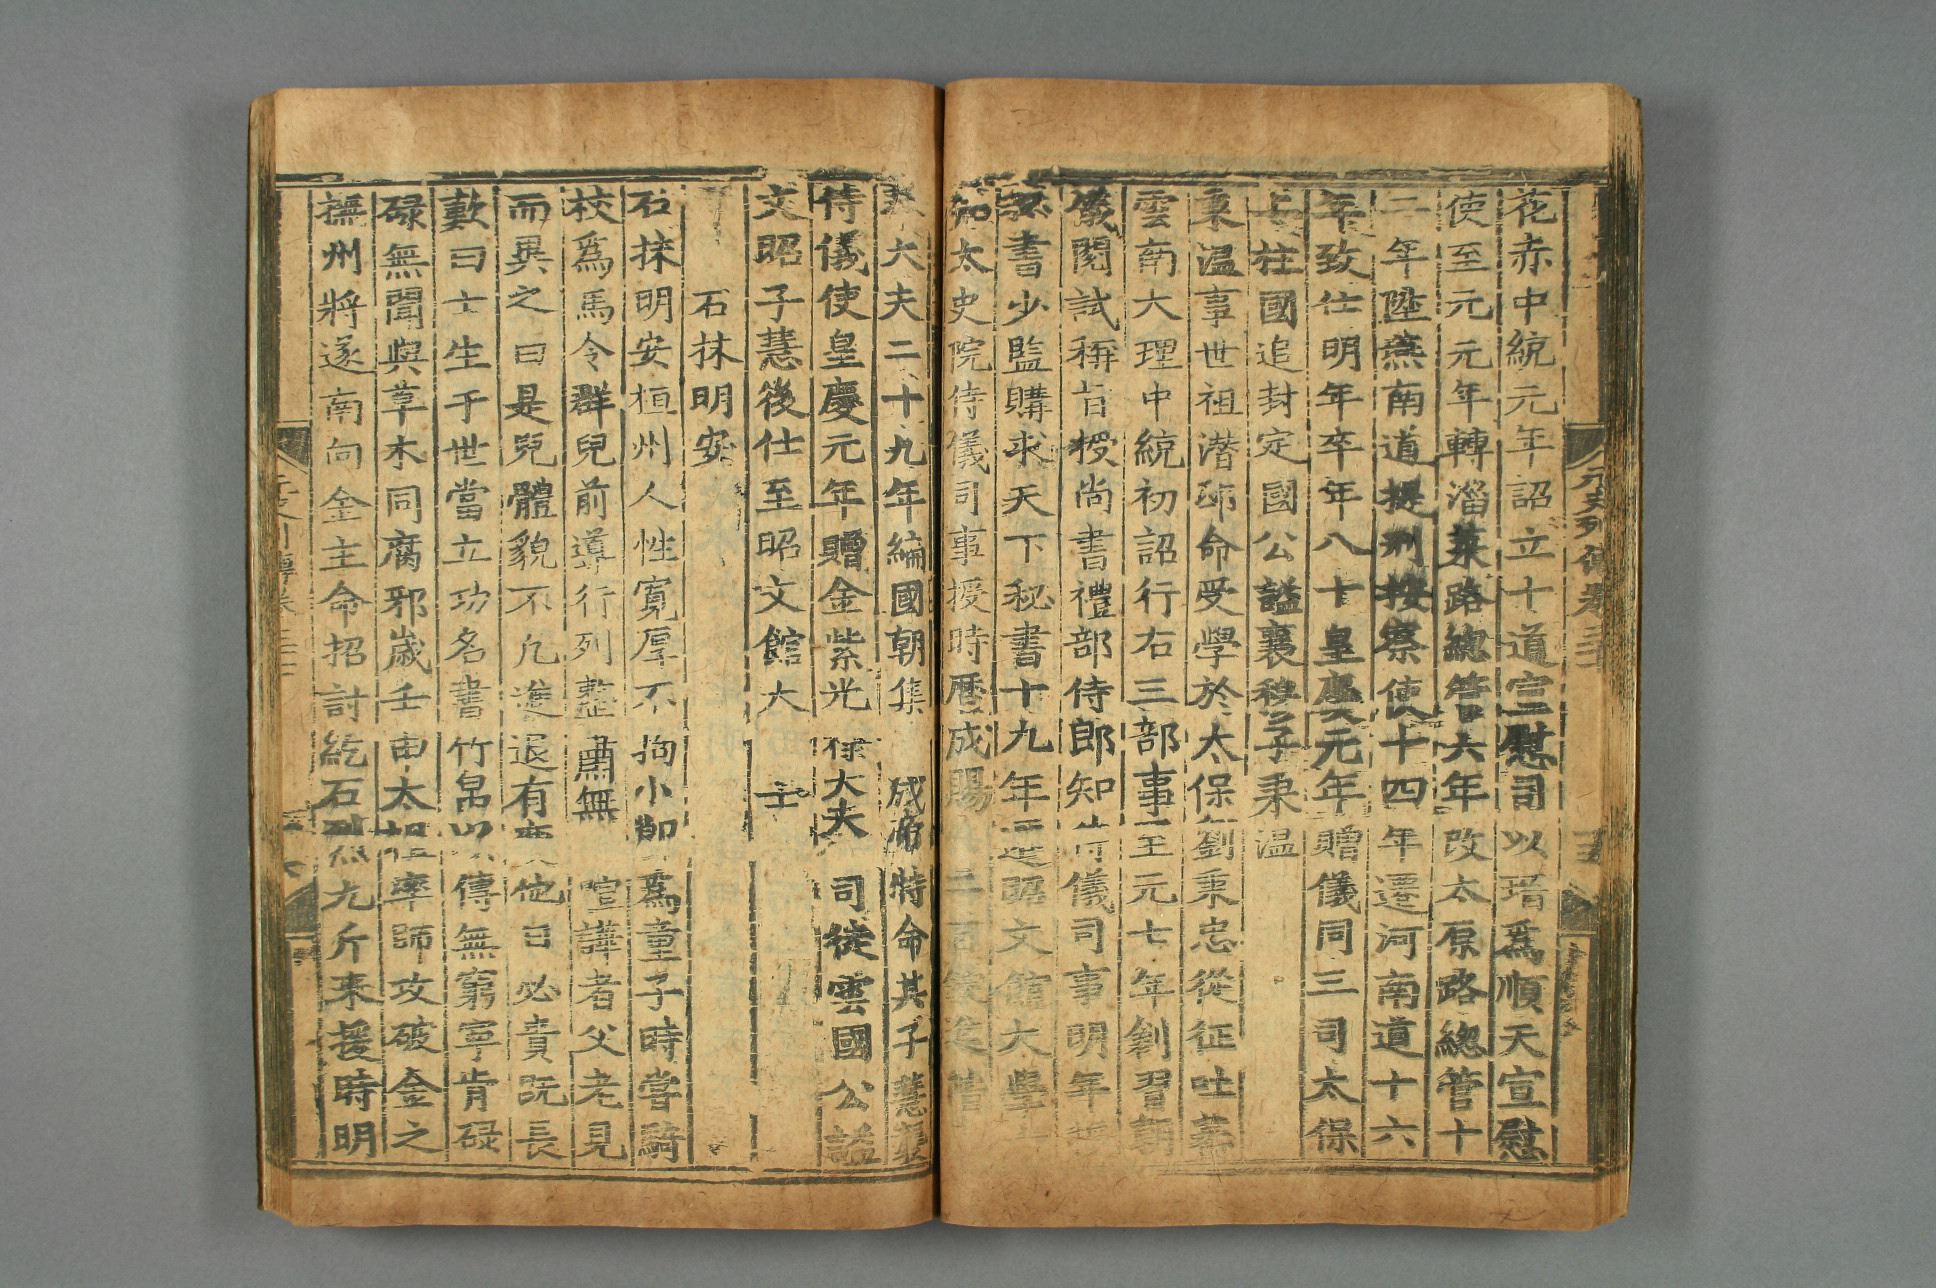 花赤中統元年詔立十道宣慰司以瑨爲順天宣慰
使至元元年轉淄萊路總管六年改太原路總管十
二年陞燕南道提刑按察使十四年遷河南道十六
年致仕明年卒年八十皇慶元年贈儀同三司太保
上柱國追封定國公謚襄穆子秉温
秉温事世祖潛邸命受學於太保劉秉忠從征吐蕃
雲南大理中統初詔行右三部事至元七年創習朝
儀閱試稱旨授尚書禮部侍郎知侍儀司事明年
秘書少監購求天下秘書十九年遷昭文館大學士
知太史院侍儀司事授時曆成賜鈔二百錠進階
大夫二十九年編國朝集 成而特命其子慧襲
侍儀使皇慶元年贈金紫光祿大夫 司徒雲國公謚
文昭子慧後仕至昭文館大 士
石抹明安
石抹明安桓州人性寬厚不拘小節爲童子時嘗騎
校爲馬令群兒前導行列整肅無 喧譁者父老見
而異之曰是兒體貌不凡進退有度他日必貴旣長
歎曰士生于世當立功名書竹帛以傳無窮寧肯碌
碌無聞與草木同腐邪歲壬申太祖率師攻破金之
撫州將遂南向金主命招討紇石烈九斤來援時明
元史列傳卷三十
十五